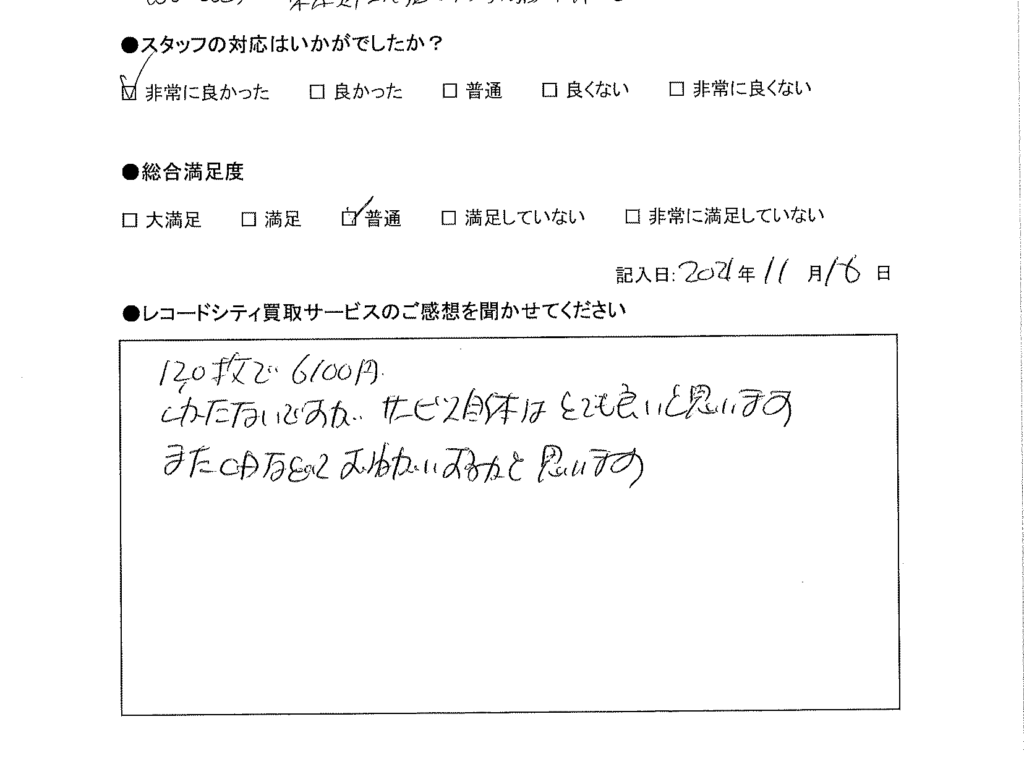 ●スタッフの対応はいかがでしたか？
☑ 非常に良かった □ 良かった □ 普通 □ 良くない □ 非常に良くない
●総合満足度
□ 大満足 □ 満足 ☑ 普通 □ 満足していない □ 非常に満足していない
記入日:2021年 11 月 16 日
●レコードシティ買取サービスのご感想を聞かせてください
120枚で 6100円.
しかたないですが、サービス自体は とても良いと思います
また CD など おねがいするかと 思います